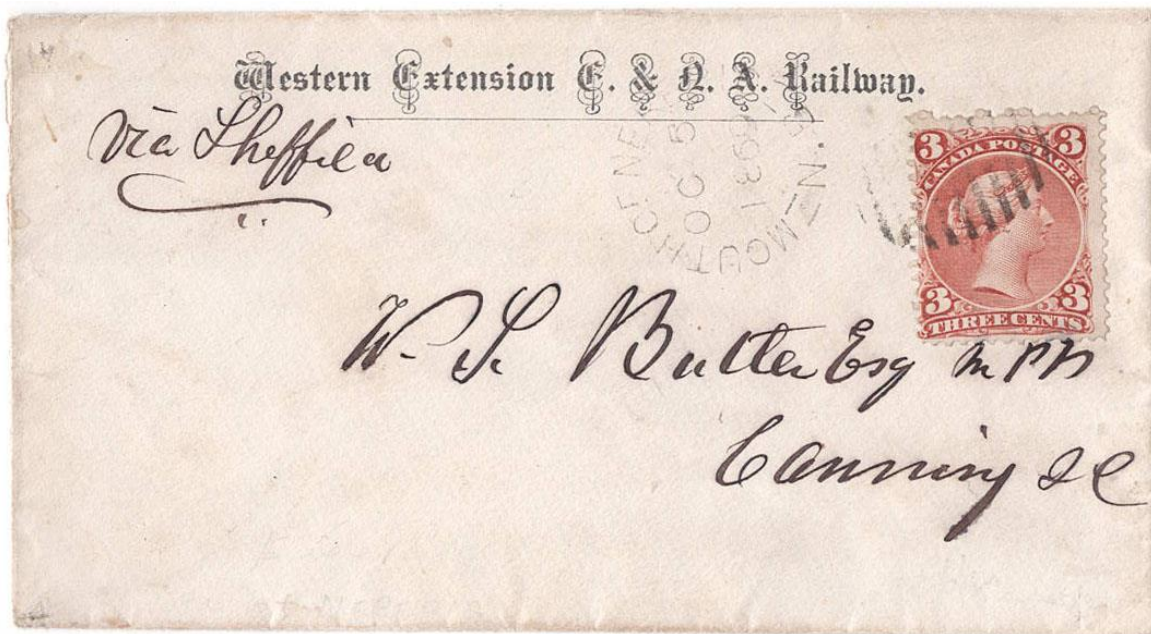 Western Extension E. & N. A. Railway.
Via Sheffield
OC 5
1869
N.B
3 CANADA POSTAGE 3
3 3
THREE CENTS
W. S. Butler Esq M PP
Canning Q C